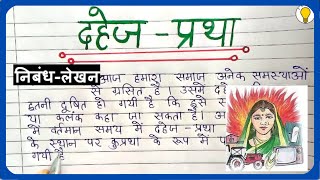 दहेज - प्रथा
निबंध-लेखन
आज हमारा समाज अनेक समस्याओं
से ग्रसित है। उसमें
इतनी दूषित हो गयी है कि इसे
या कलंक कहा जा सकता है।
में वर्तमान समय में दहेज - प्रथा
के स्थान पर कुप्रथा के रूप में
गयी है